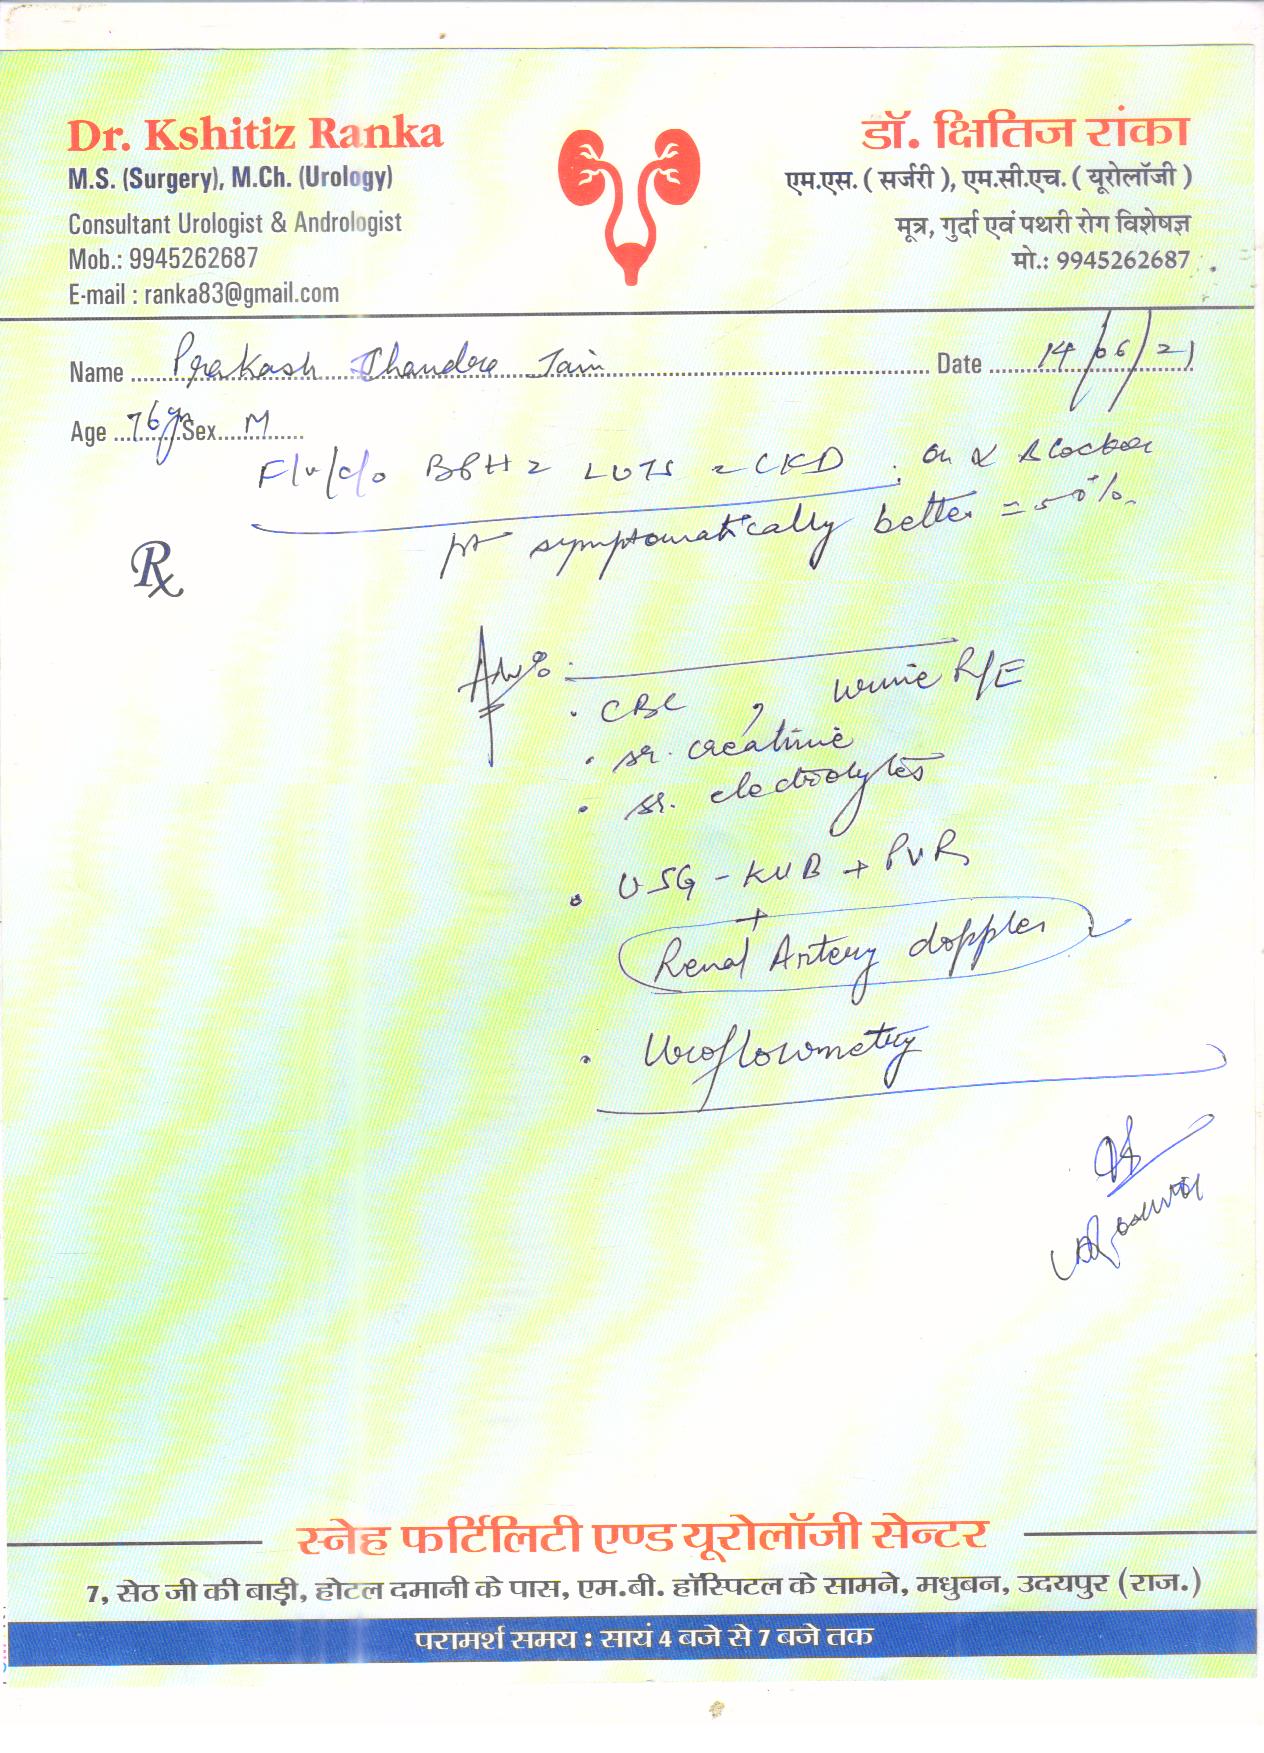 Dr. Kshitiz Ranka
M.S. (Surgery), M.Ch. (Urology)
Consultant Urologist & Andrologist
Mob.: 9945262687
E-mail : ranka83@gmail.com
डॉ. क्षितिज रांका
एम.एस. ( सर्जरी ), एम.सी.एच. ( यूरोलॉजी )
मूत्र, गुर्दा एवं पथरी रोग विशेषज्ञ
मो.: 9945262687
Name Prakash Chandra Jain Date 14/06/21
Age 76yr Sex M
F/u/c/o BPH c LUTS c CKD. on α Blocker
pt symptomatically better = 50%.
Rx
Adv:
• CBC, urine R/E
• sr. creatinine
• sr. electrolytes
• USG - KUB + PVR
+
Renal Artery doppler
• Uroflowmetry
स्नेह फर्टिलिटी एण्ड यूरोलॉजी सेन्टर
7, सेठ जी की बाड़ी, होटल दमानी के पास, एम.बी. हॉस्पिटल के सामने, मधुबन, उदयपुर (राज.)
परामर्श समय : सायं 4 बजे से 7 बजे तक